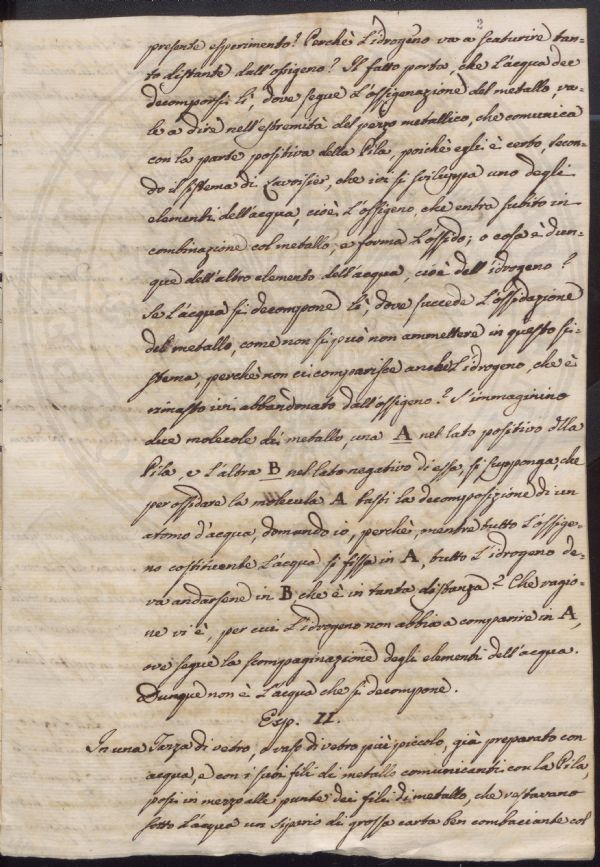 2
presente esperimento? Perchè l'idrogeno va a scaturire tan-
to distante dall'ossigeno? Il fatto porta, che l'acqua dee
decomporsi lì, dove segue l'ossigenazione del metallo, va-
le a dire nell'estremità del pezzo metallico, che comunica
con la parte positiva della Pila, poichè egli è certo, secon-
do il sistema di Lavoisier, che ivi si sviluppa uno degli
elementi dell'acqua, cioè l'ossigeno, che entra subito in
combinazione col metallo, e forma l'ossido; o cosa è dun-
que dell'altro elemento dell'acqua, cioè dell'idrogeno?
Se l'acqua si decompone lì, dove succede l'ossidazione
del metallo, come non si può non ammettere in questo si-
stema, perchè non ci comparisce anche l'idrogeno, che è
rimasto ivi abbandonato dall'ossigeno? S'immaginino
due molecole di metallo, una A nel lato positivo della
Pila, e l'altra B nel lato negativo di essa, si supponga, che
per ossidare la molecula A basti la decomposizione di un
atomo d'acqua, domando io, perchè, mentre tutto l'ossige-
no costituente l'acqua si fissa in A, tutto l'idrogeno de-
va andarsene in B che è in tanta distanza? Che ragio-
ne vi è, per cui l'idrogeno non abbia a comparire in A,
ove segue la scompaginazione degli elementi dell'acqua.
Dunque non è l'acqua che si decompone.
Esp. II.
In una Tazza di vetro, o vaso di vetro più piccolo, già preparato con
acqua, e con i suoi fili di metallo comunicanti con la Pila,
posi in mezzo alle punte dei fili di metallo, che restavano
sotto l'acqua un sipario di grossa carta ben combaciante col